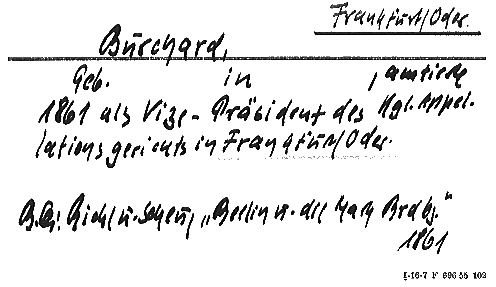 Frankfurt/Oder.
Burchard,
Geb. in , amtierte
1861 als Vize-Präsident des Kgl. Appel-
lationsgerichts in Frankfurt/Oder.
B.Qu: "Berlin u. die Mark Brdbg."
1861
I-16-7 F 696 55 102